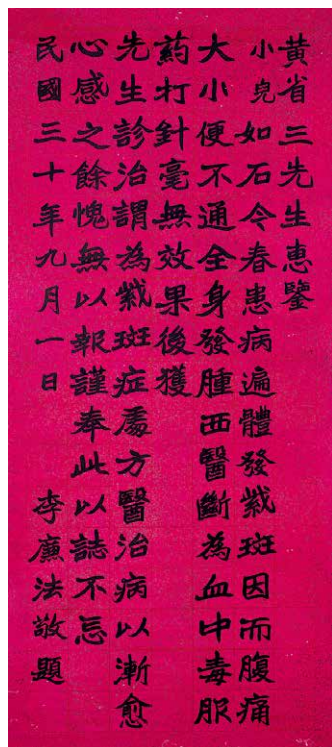 黃省三先生惠鑒
小兒如石今春患病遍體發紫斑因而腹痛
大小便不通全身發腫西醫斷為血中毒服
葯打針毫無效果後獲
先生診治謂為紫斑症處方醫治病以漸愈
心感之餘愧無以報謹奉此以誌不忘
民國三十年九月一日　李廉法敬題